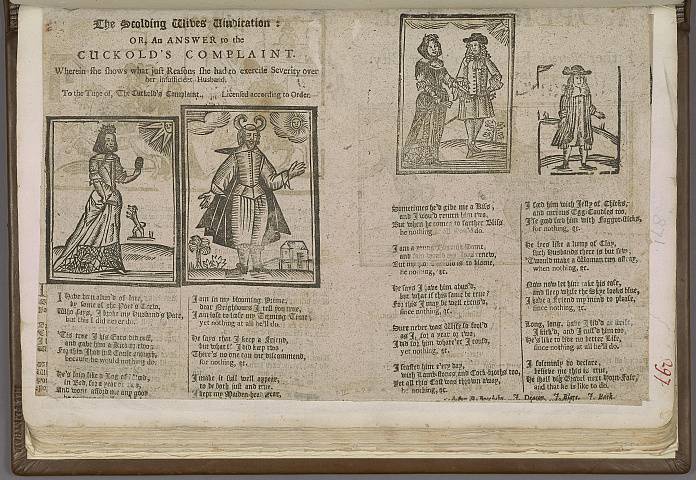 The Scolding Wives Vindication:
OR, An ANSWER to the
CUCKOLD'S COMPLAINT.
Wherein she shows what just Reasons she had to exercise Severity over
her insufficient Husband.
To the Tune of, The Cuckold's Complaint. Licensed according to Order.
I Have been abus'd of late,
by some of the Poet's Crew,
Who says, I broke my Husband's Pate,
but this I did never do.
'Tis true I his Ears did cuff,
and gave him a kick or two;
For this I had just Cause enough,
because he would nothing do.
He's lain like a Log of Wood,
in Bed, for a year or two,
And wont afford me any good
I am in my blooming Prime,
dear Neighbours I tell you true,
I am loth to lose my Teeming Time,
yet nothing at all he'll do.
He says that I keep a Friend,
but what if I did keep two
There's no one can me discommend,
for nothing, &c.
I make it full well appear,
to be both just and true.
I kept my Maiden-head year,
Sometimes he'd give me a Kiss,
and I wou'd return him two,
But when he comes to farther Bliss
he nothing, &c.
I am a young Dame,
and renew,
But my is to blame,
he nothing, &c.
He says I have him abus'd,
but what if this same be true?
For this I may be well excus'd,
since nothing, &c.
Sure never was Wife so fool'd
as I, for a year or two;
I did for him whate'er I cou'd,
yet nothing, &c.
I feasted him e'ry day,
with Lamb-stones and Cock-broths too,
Yet all this Cost was thrown away,
he nothing, &c.
I feed him with Jelly of Chicks,
and curious Egg-Caudles too,
I'le feed him with Faggot-sticks,
for nothing, &c.
He lyes like a lump of Clay,
such Husbands there is but few,
'Twould make a Woman run astray,
when nothing, &c.
Now now let him take his ease,
and sleep while the Skye looks blue,
I have a Friend my mind to please,
since nothing, &c.
Long, long, have I liv'd at strife,
I kick'd, and I cuff'd him too,
He's like to live no better Life,
since nothing at all he'll do.
I solemnly do declare,
believe me this is true,
He shall dig Gravel next Horn-Fair,
and that he is like to do.
J. Deacon, J. Blare. J. Back.